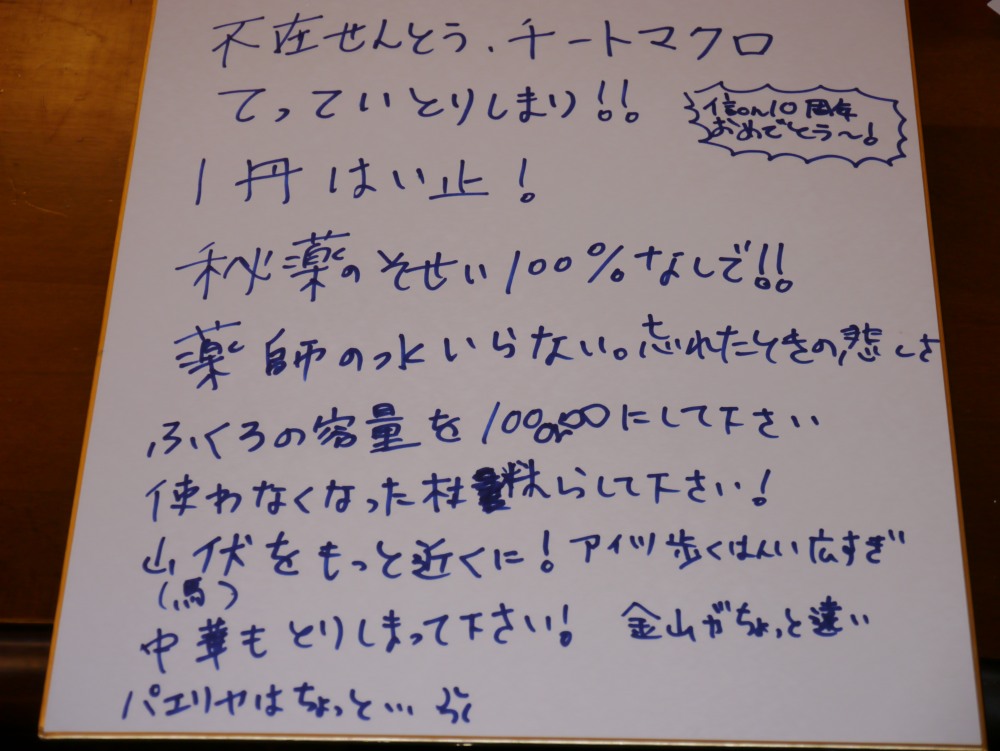 不在せんとう、チートマクロ
てっていとりしまり!!
信on10周年
おめでとう〜!
1丹はい止!
秘薬のそせい100%なしで!!
薬師の水いらない。忘れたときの悲しさ
ふくろの容量を100or∞にして下さい
使わなくなった材料へらして下さい!
山伏をもっと近くに!アイツ歩くはんい広すぎ
(馬)
中華もとりしまって下さい! 金山がちょっと遠い
パエリヤはちょっと…